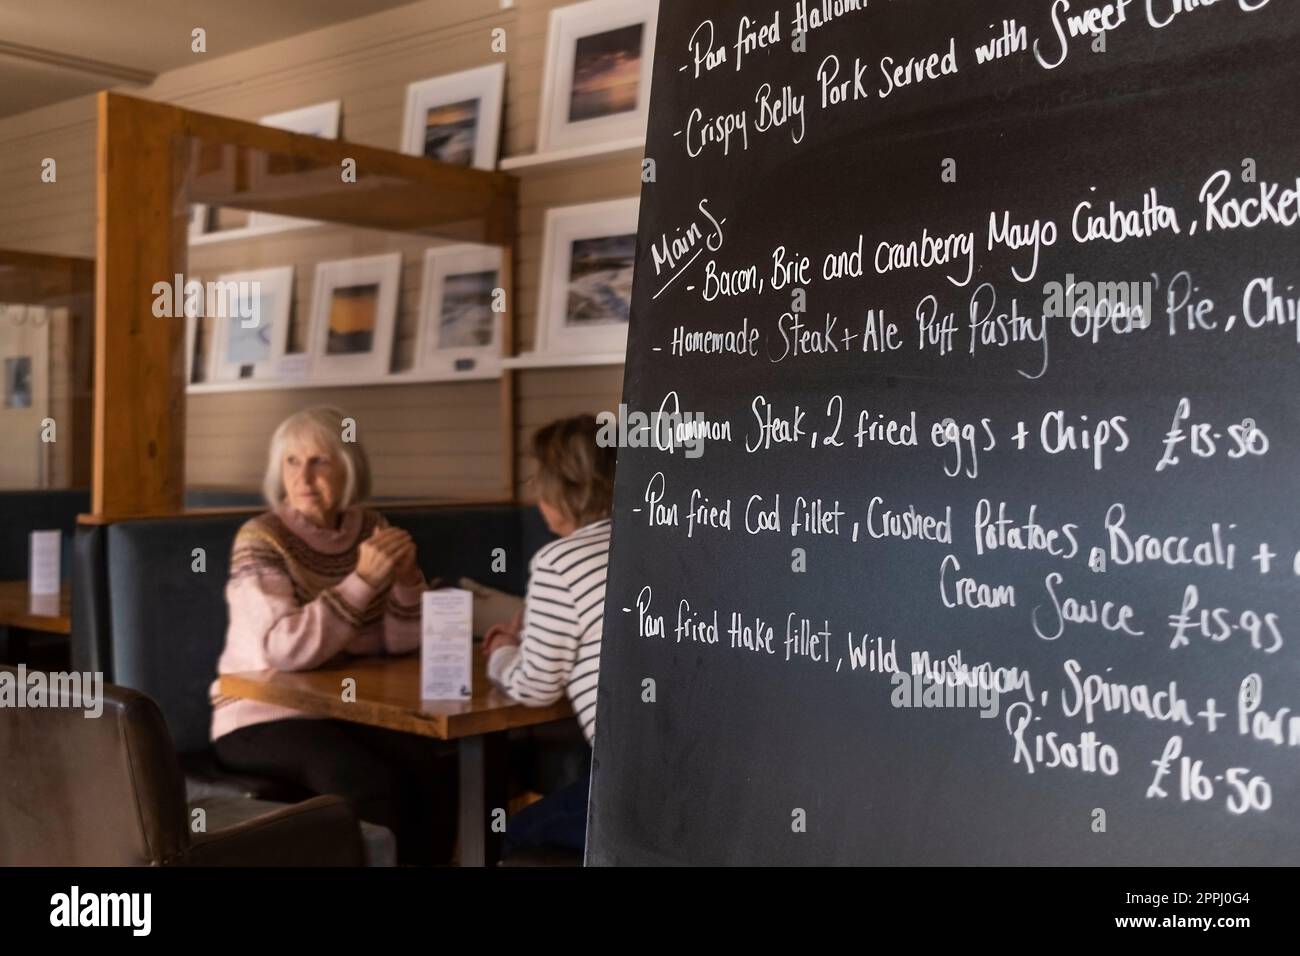 - Pan fried
- Crispy Belly Pork Served with Sweet
Mains.
- Bacon, Brie and Cranberry Mayo Ciabatta, Rocket
- Homemade Steak + Ale Puff Pastry 'open' Pie,
- Gammon Steak, 2 fried eggs + Chips £13.50
- Pan fried Cod fillet, Crushed Potatoes, Broccoli +
Cream Sauce £15.95
- Pan fried Hake fillet, Wild Mushroom, Spinach +
Risotto £16.50
alamy
Image ID: 2PPJ0G4
www.alamy.com